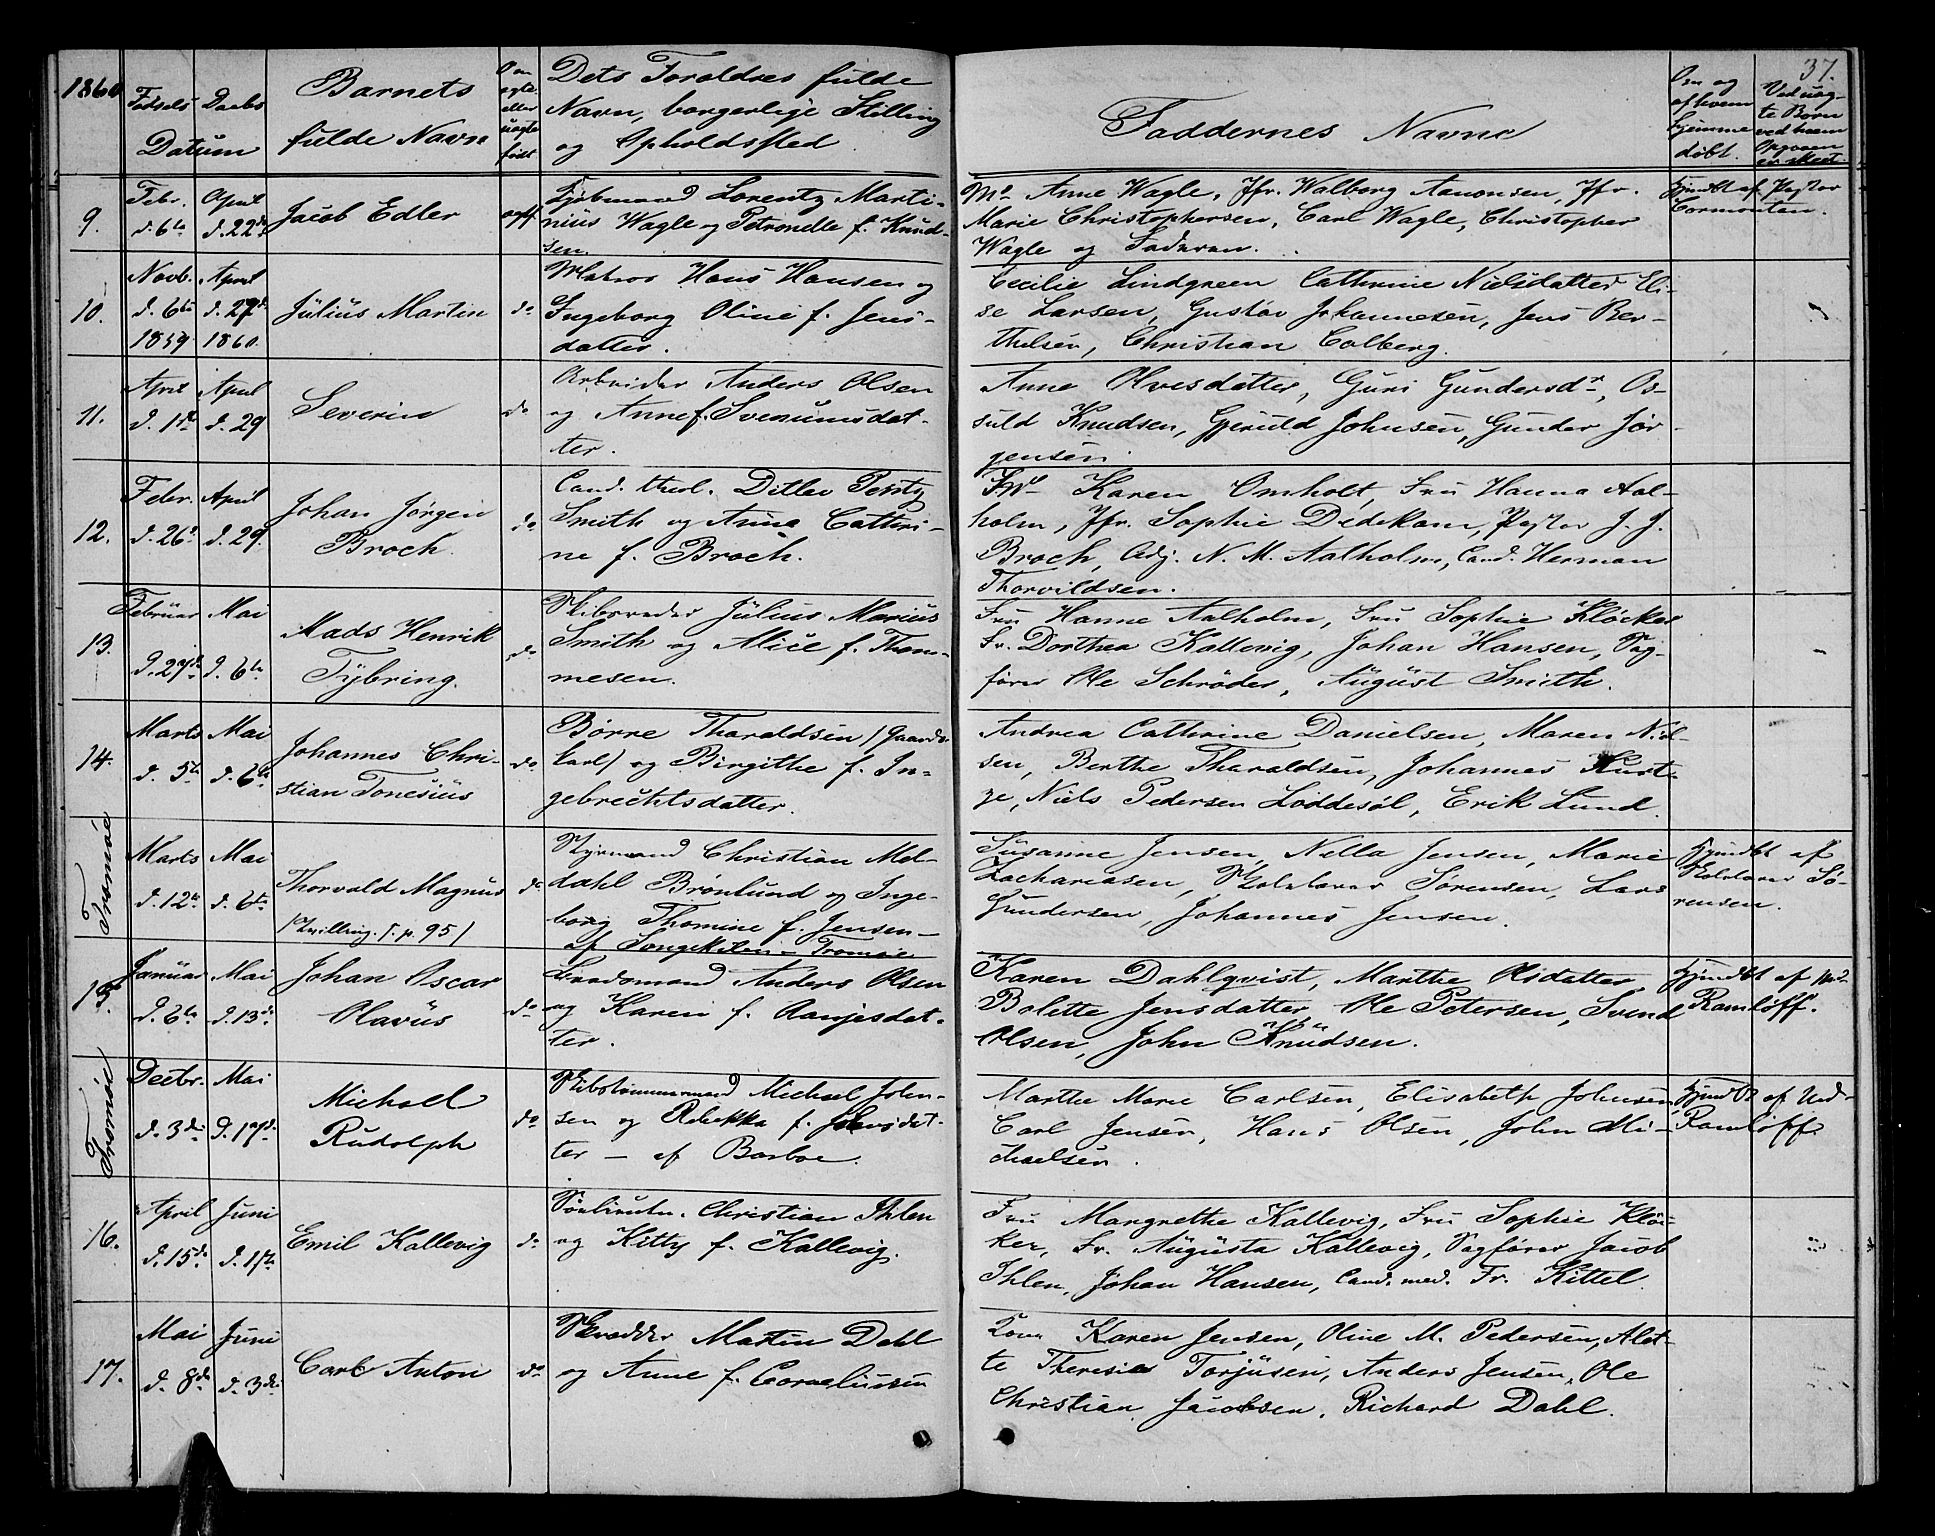 1860
Fødsels
Daabs
Datum
Barnets
fulde Navn
Om
ægte
eller
uægte
født
Dets Foraldres fulde
Navn, borgerlige Stilling
og Opholdssted
Faddernes Navne
37.
Om og
af hvem
hjemme
døbt.
Ved uæg-
te Børn
ved hvem
Opgaven
er skeet
9.
Febr.
d. 6te
April
d. 22de
Jacob Edler
ægtf
Lorentz Marti-
nius Wagle og Petronelle f. Knud-
sen.
Md Anne Wagle, Jfr. Walborg Aanonsen, Jfr.
Marie Christophersen, Carl Wagle, Christopher
Wagle og Faderen.
Hjmdbt af Pastor
Cormonten.
10.
Novb.
d. 6te
1859
April
d. 27de
1860.
Julius Martin
do
Matros Hans Hansen og
Ingeborg Oline f. Jens-
datter.
Cecilie Lindgreen Cathrine Nielsdatter Eli-
se Larsen, Gustav Johannesen, Jens Ber-
thelsen, Christian Colberg.
11.
April
d. 1ste
April
d. 29
Severin
do
Arbeider Anders Olsen
og Anne f. Svenumsdat-
ter.
Anne Olvesdatter, Guri Gundersdr, Os-
suld Knudsen, Gjeruld Johnsen, Gunder Jør-
gensen.
12.
Febr.
d. 26de
April
d. 29.
Johan Jørgen
Broch.
do
Cand. theol. Ditlev Pentz
Smith og Anna Cathri-
ne f. Broch.
Md Karen Omholt, Fru Hanna Aal-
holm, Jfr. Sophie Dedekam, Pastor J. J.
Broch, Adj. N. M. Aalholm, Cand. Herman
Thorvildsen.
13.
Februar
d. 27de
Mai
d. 6te
Mads Henrik
Tybring.
do
Skibsreder Julius Marius
Smith og Alice f. Thom-
mesen.
Fru Hanne Aalholm, Fru Sophie Kløcker
Fr. Dorthea Kallevig, Johan Hansen, Sag-
fører Ole Schrøder, August Smith.
14.
Marts
d. 5te
Mai
d. 6te
Johannes Chri-
stian Tonesius
do
Børre Tharaldsen / Gaards-
karl / og Birgithe f. In-
gebrechtsdatter.
Andrea Cathrine Danielsen, Maren Niel-
sen, Berthe Tharaldsen, Johannes Kurt-
ze, Niels Pedersen Løddesøl, Erik Lund.
Tromøe
Marts
d. 12te
Mai
d. 6te
Thorvald Magnus
/ Tvilling. f. p. 95 /
do
Styrmand Christian Mel-
dahl Brønlund og Inge-
borg Thomine f. Jensen -
af Songekilen - Tromøe
Susanne Jensen, Nella Jensen, Marie
Zachariasen, Skolelærer Sørensen, Lars
Gundersen, Johannes Jensen.
Hjmdbt af
Skolelærer Sø-
rensen.
15.
Januar
d. 6te
Mai
d. 13de
Johan Oscar
Olavus
do
Anders Olsen
og Karen f. Aanjesdat-
ter.
Karen Dahlqvist, Marthe Olsdatter,
Bolette Jensdatter, Ole Petersen, Svend
Olsen, John Knudsen.
Hjmdbt af Md
Ramløff.
Tromøe
Decbr.
d. 3die
Mai
d. 17de
Michael
Rudolph
do
Skibstømmermand Michael John-
sen og Rebekka f. Johnsdat-
ter - af Barboe.
Marthe Marie Carlsen, Elisabeth Johnsen
Carl Jensen, Hans Olsen, John Mi-
chaelsen.
Hjmdbt af
Ramløff.
16.
April
d. 15de
Juni
d. 1ste
Emil Kallevig
do
Søelieutn. Christian Ihlen
og Kitty f. Kallevig.
Fru Margrethe Kallevig, Fru Sophie Kløc-
ker, Fr. Augusta Kallevig, Sagfører Jacob
Ihlen, Johan Hansen, Cand. med. Fr. Kittel.
17.
Mai
d. 8de
Juni
d. 3die
Carl Anton
do
Skrædder Martin Dahl
og Anne f. Corneliussen
Kone Karen Jensen, Oline M. Pedersen, Alet-
te Theresia Torjusen, Anders Jensen, Ole
Christian Jacobsen, Richard Dahl.